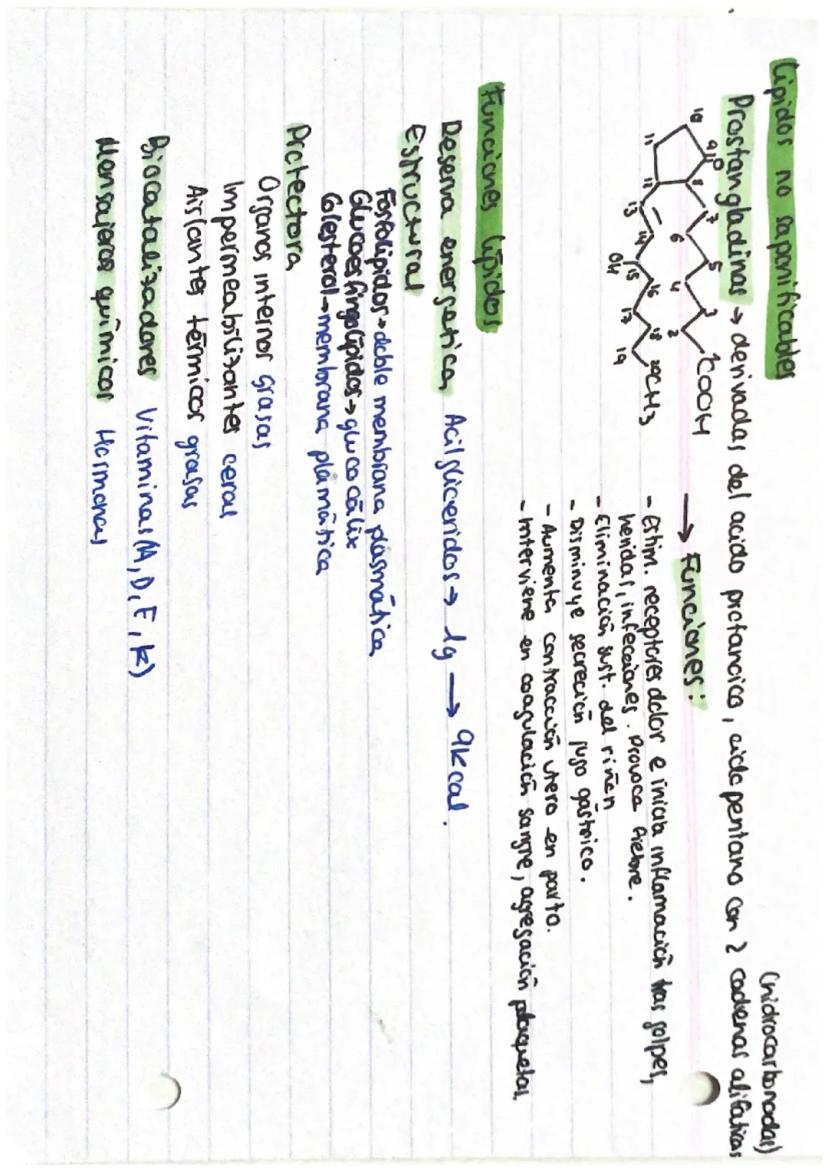 Lípidos no saponificables
(hidrocarbonadas)
Prostangladinas → derivadas del acido protanoico, ciclo pentano con 2 cadenas alifáticas
→ Funciones:
- Estim. receptores dolor e inicia inflamación tras golpes,
heridas, infecciones. Provoca fiebre.
- Eliminación sust. del riñón
- Disminuye secreción jugo gástrico.
- Aumenta contracción utero en parto.
- Interviene en coagulación sangre, agregación plaquetas.
10 9 8 7 6 5 4 3 2 1 COOH
11 12 13 14 15 16 17 18 19 20 CH3
OH
Funciones lípidos
Reserva energética Acilgliceridos → 1g → 9kcal.
Estructural
Fosfolípidos → doble membrana plasmática
Glucoesfingolípidos → glucocálix
Colesterol → membrana plasmática
Protectora
Organos internos grasas
Impermeabilizantes ceras
Aislantes térmicos grasas
Biocatalizadores Vitaminas (A, D, E, K)
Mensajeros químicos Hormonas